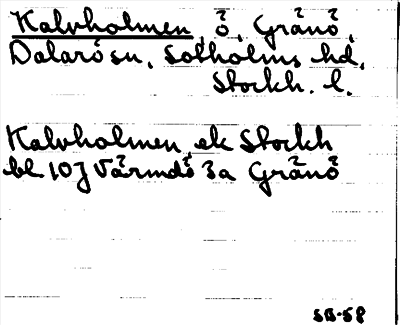 Kalvholmen, ö, Gränö,
Dalarö sn, Sotholms hd,
Stockh. l.
Kalvholmen ek Stockh
bl 107 Värmdö 3a Gränö
SB-58